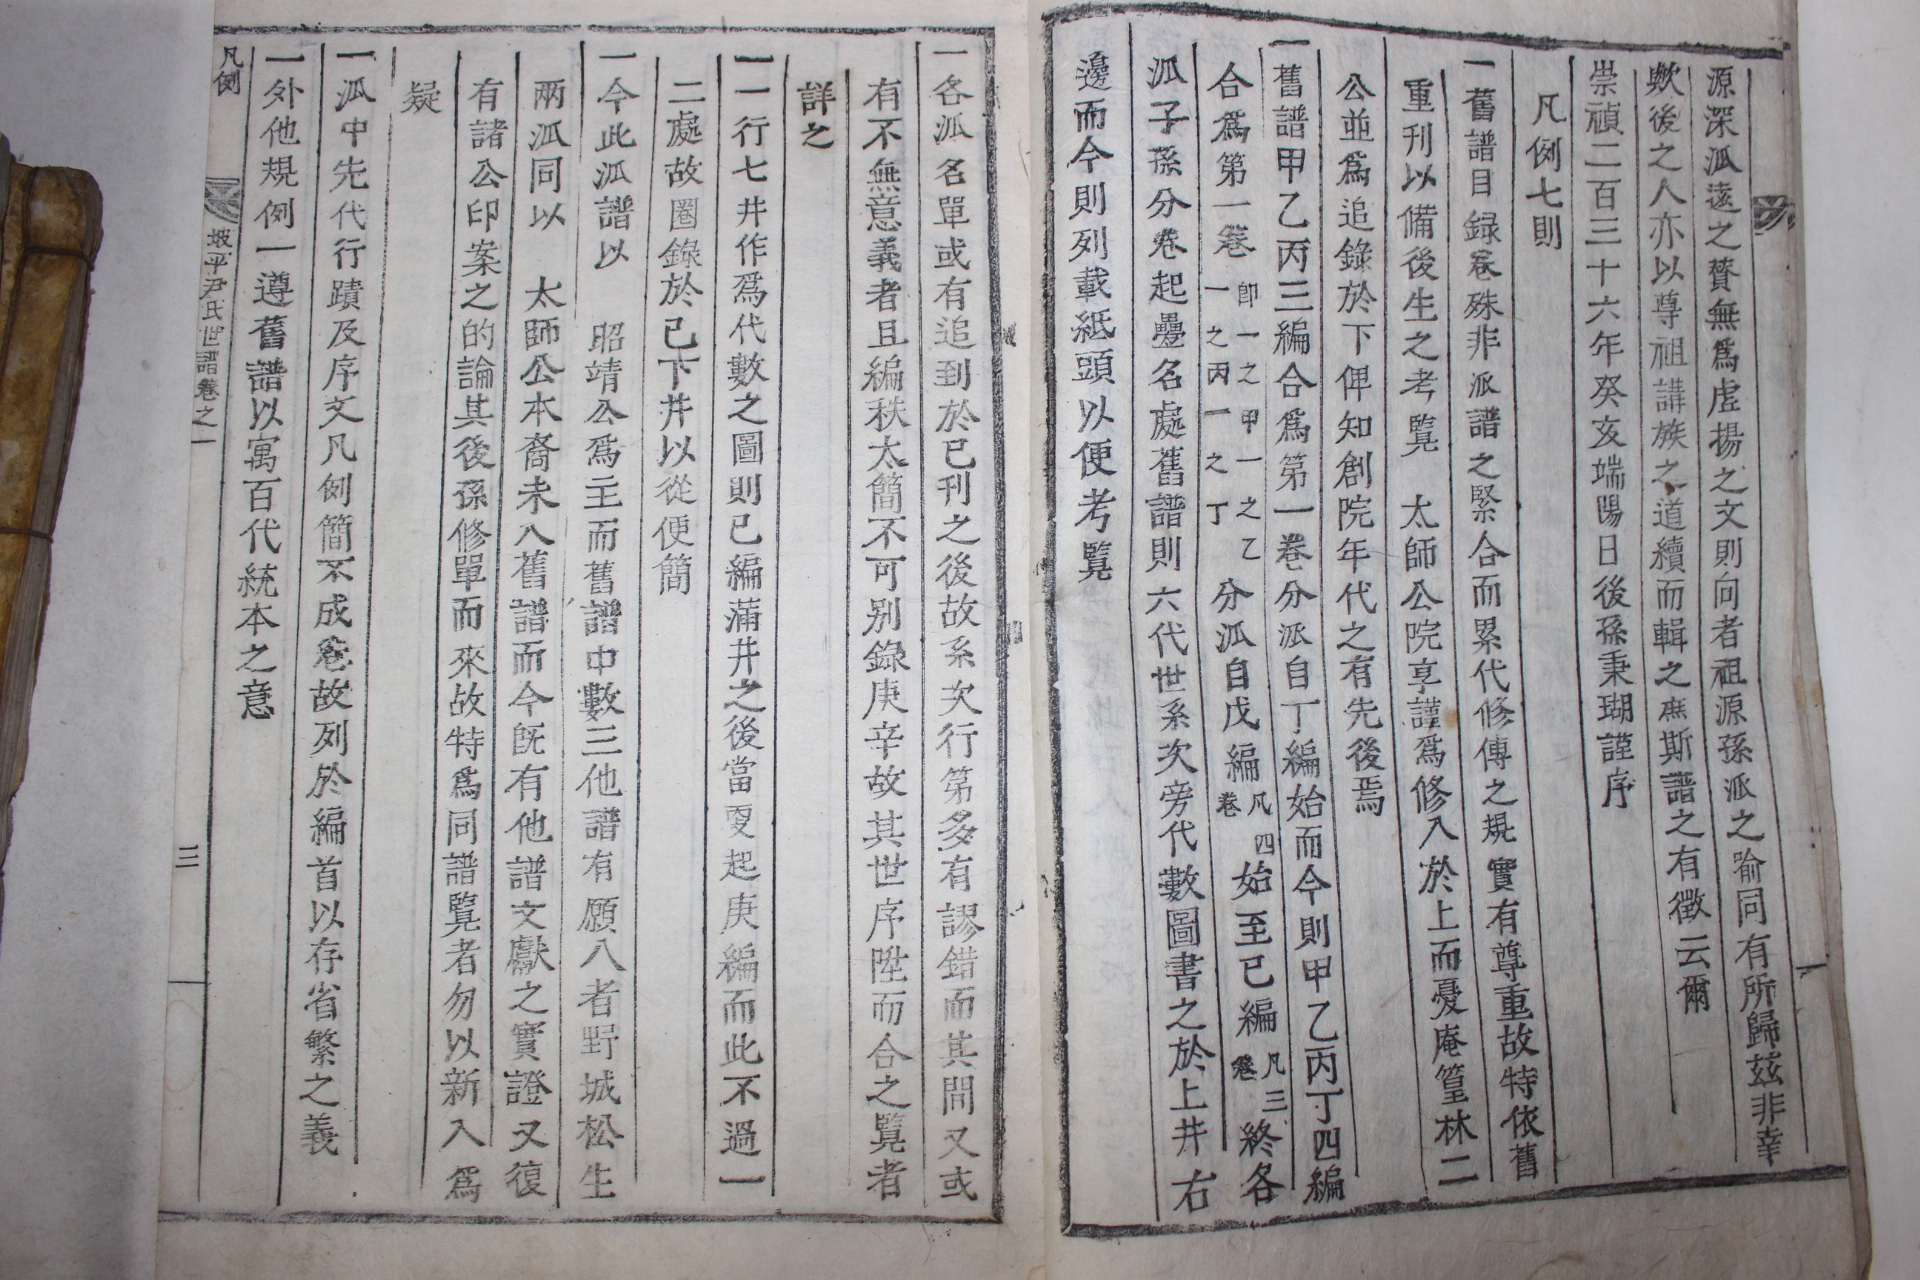 源深派遠之贊無爲虛揚之文則向者祖源孫派之喻同有所歸茲非幸
歟後之人亦以尊祖講族之道續而輯之庶斯譜之有徵云爾
崇禎二百三十六年癸亥端陽日後孫秉瑚謹序
凡例七則
一舊譜目録卷殊非派譜之緊合而累代修傳之規實有尊重故特依舊
重刊以備後生之考覧 太師公院享謹爲修入於上而憂庵篁林二
公並爲追錄於下俾知創院年代之有先後焉
一舊譜甲乙丙三編合爲第一卷分派自丁編始而今則甲乙丙丁四編
合爲第一卷卽一之甲一之乙一之丙一之丁分派自戊編凡四卷始至已編凡三卷終各
派子孫分卷起疊名處舊譜則六代世系次旁代數圖書之於上井右
邊而今則列載紙頭以便考覧
一各派名單或有追到於已刊之後故系次行第多有謬錯而其間又或
有不無意義者且編秩太簡不可別錄庚辛故其世序陞而合之覧者
詳之
一一行七井作爲代數之圖則已編蒲井之後當更起庚編而此不過一
二處故圈錄於已下井以從便簡
一今此派譜以 昭靖公爲主而舊譜中數三他譜有願入者野城松生
兩派同以 太師公本裔未入舊譜而今旣有他譜文獻之實證又復
有諸公印案之的論其後孫修單而來故特爲同譜覧者勿以新入爲
疑
一派中先代行蹟及序文凡例簡不成卷故列於編首以存省繁之義
一外他規例一遵舊譜以寓百代統本之意
凡例
坡平尹氏世譜卷之一
三